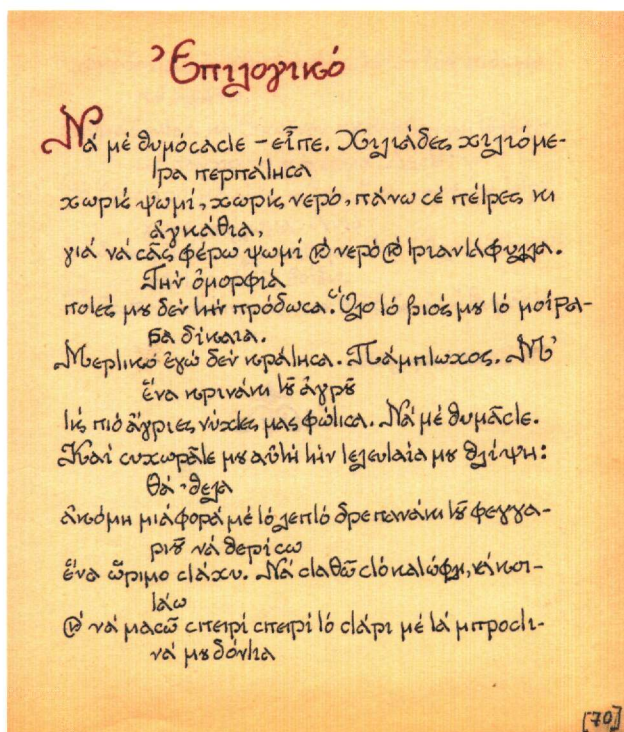 Ἐπιλογικό
Νά μέ θυμόσαστε – εἶπε. Χιλιάδες χιλιόμε-
τρα περπάτησα
χωρίς ψωμί, χωρίς νερό, πάνω σέ πέτρες κι
ἀγκάθια,
γιά νά σᾶς φέρω ψωμί κ νερό κ τριαντάφυλλα.
Τήν ὀμορφιά
ποτές μου δέν τήν πρόδωσα. Ὅλο τό βιός μου τό μοίρα-
σα δίκαια.
Μερτικό ἐγώ δέν κράτησα. Πάμπτωχος. Μ'
ἕνα κρινάκι τοῦ ἀγροῦ
τίς πιό ἄγριες νύχτες μας φώτισα. Νά μέ θυμᾶστε.
Καί συχωρᾶτε μου αὐτή τήν τελευταία μου θλίψη:
Θά 'θελα
ἀκόμη μιά φορά μέ τό λεπτό δρεπανάκι τοῦ φεγγα-
ριοῦ νά θερίσω
ἕνα ὥριμο στάχυ. Νά σταθῶ στό κατώφλι, νά κοι-
τάω
κ νά μασῶ σπειρί σπειρί τό στάρι μέ τά μπροστι-
νά μου δόντια
[70]